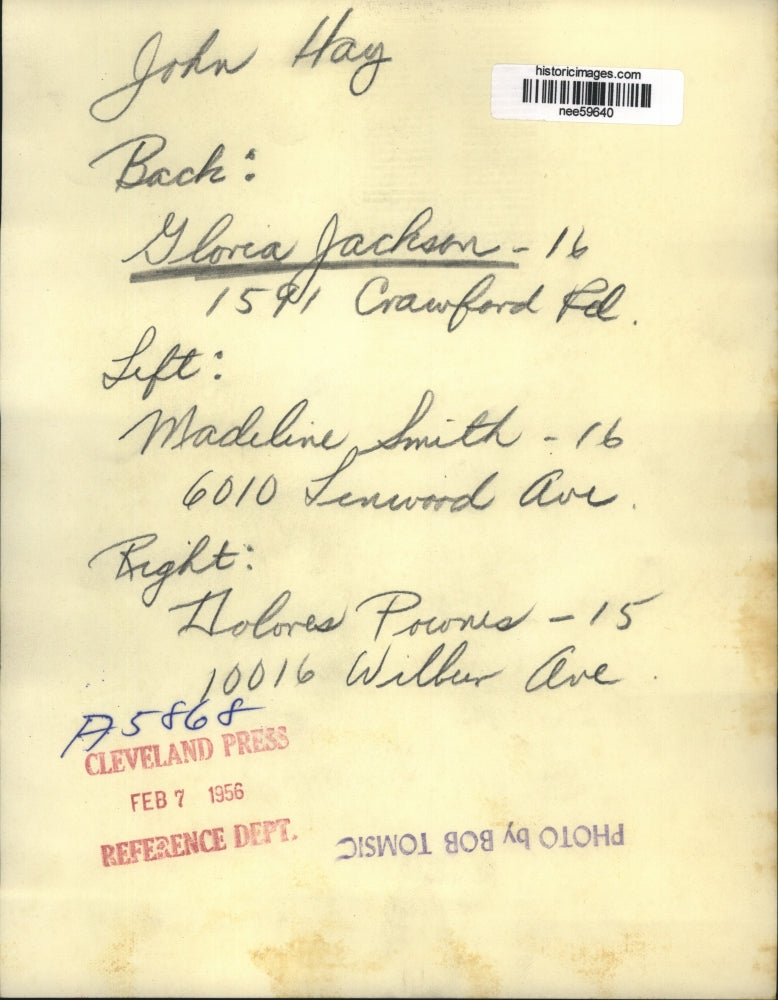 John Hay
historicimages.com
nee59640
Back:
Gloria Jackson - 16
1591 Crawford Rd.
Left:
Madeline Smith - 16
6010 Linwood Ave.
Right:
Dolores - 15
10016 Wilbur Ave.
A5868
CLEVELAND PRESS
FEB 7 1956
REFERENCE DEPT.
PHOTO by BOB TOMSIC